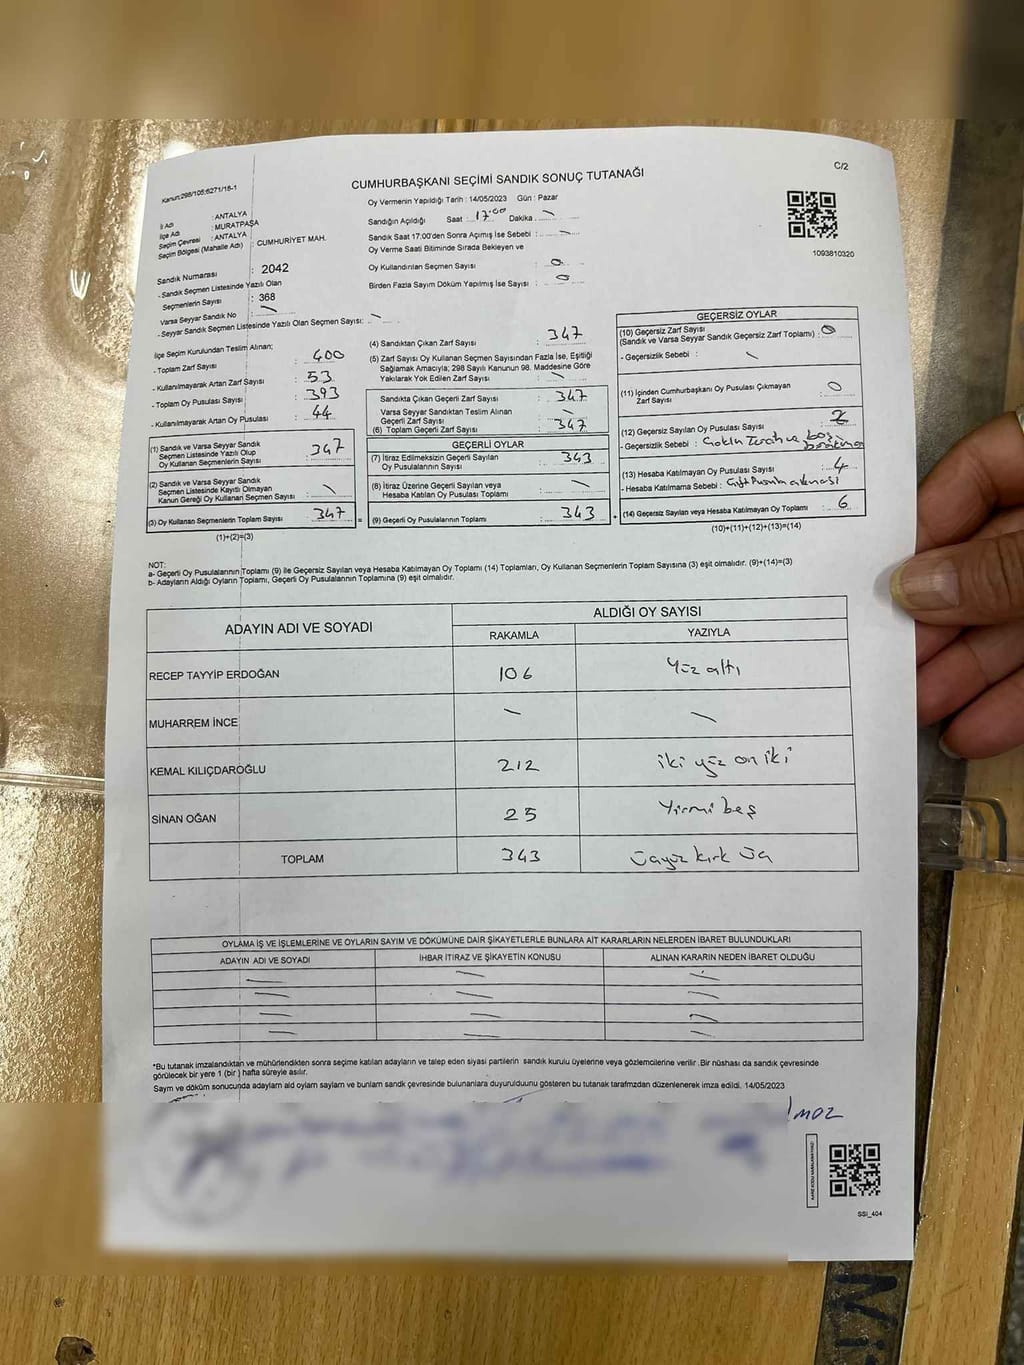 C/2
Kanun:298/105;6271/18-1
CUMHURBAŞKANI SEÇİMİ SANDIK SONUÇ TUTANAĞI
İl Adı : ANTALYA
İlçe Adı : MURATPAŞA
Seçim Çevresi : ANTALYA
Seçim Bölgesi (Mahalle Adı) : CUMHURİYET MAH.
Oy Vermenin Yapıldığı Tarih : 14/05/2023 Gün : Pazar
Sandığın Açıldığı Saat : 17:00 Dakika :
Sandık Saat 17:00'den Sonra Açımış İse Sebebi :
Oy Verme Saati Bitiminde Sırada Bekleyen ve
Oy Kullandırılan Seçmen Sayısı : 0
Birden Fazla Sayım Döküm Yapılmış İse Sayısı : 0
1093810320
Sandık Numarası : 2042
- Sandık Seçmen Listesinde Yazılı Olan
Seçmenlerin Sayısı : 368
Varsa Seyyar Sandık No :
- Seyyar Sandık Seçmen Listesinde Yazılı Olan Seçmen Sayısı:
İlçe Seçim Kurulundan Teslim Alınan;
- Toplam Zarf Sayısı : 400
- Kullanılmayarak Artan Zarf Sayısı : 53
- Toplam Oy Pusulası Sayısı : 393
- Kullanılmayarak Artan Oy Pusulası : 44
(1) Sandık ve Varsa Seyyar Sandık
Seçmen Listesinde Yazılı Olup
Oy Kullanan Seçmenlerin Sayısı : 347
(2) Sandık ve Varsa Seyyar Sandık
Seçmen Listesinde Kayıtlı Olmayan
Kanun Gereği Oy Kullanan Seçmen Sayısı :
(3) Oy Kullanan Seçmenlerin Toplam Sayısı : 347 =
(1)+(2)=(3)
(4) Sandıktan Çıkan Zarf Sayısı : 347
(5) Zarf Sayısı Oy Kullanan Seçmen Sayısından Fazla İse, Eşitliği
Sağlamak Amacıyla; 298 Sayılı Kanunun 98. Maddesine Göre
Yakılarak Yok Edilen Zarf Sayısı :
Sandıkta Çıkan Geçerli Zarf Sayısı : 347
Varsa Seyyar Sandıktan Teslim Alınan
Geçerli Zarf Sayısı :
(6) Toplam Geçerli Zarf Sayısı : 347
GEÇERLİ OYLAR
(7) İtiraz Edilmeksizin Geçerli Sayılan
Oy Pusulalarının Sayısı : 343
(8) İtiraz Üzerine Geçerli Sayılan veya
Hesaba Katılan Oy Pusulası Toplamı :
(9) Geçerli Oy Pusulalarının Toplamı : 343 +
GEÇERSİZ OYLAR
(10) Geçersiz Zarf Sayısı
(Sandık ve Varsa Seyyar Sandık Geçersiz Zarf Toplamı) : 0
- Geçersizlik Sebebi :
(11) İçinden Cumhurbaşkanı Oy Pusulası Çıkmayan
Zarf Sayısı : 0
(12) Geçersiz Sayılan Oy Pusulası Sayısı : 2
- Geçersizlik Sebebi :
(13) Hesaba Katılmayan Oy Pusulası Sayısı : 4
- Hesaba Katılmama Sebebi :
(14) Geçersiz Sayılan veya Hesaba Katılmayan Oy Toplamı : 6
(10)+(11)+(12)+(13)=(14)
NOT:
a- Geçerli Oy Pusulalarının Toplamı (9) ile Geçersiz Sayılan veya Hesaba Katılmayan Oy Toplamı (14) Toplamları, Oy Kullanan Seçmenlerin Toplam Sayısına (3) eşit olmalıdır. (9)+(14)=(3)
b- Adayların Aldığı Oyların Toplamı, Geçerli Oy Pusulalarının Toplamına (9) eşit olmalıdır.
ADAYIN ADI VE SOYADI
ALDIĞI OY SAYISI
RAKAMLA YAZIYLA
RECEP TAYYİP ERDOĞAN 106 Yüz altı
MUHARREM İNCE
KEMAL KILIÇDAROĞLU 212 iki yüz on iki
SİNAN OĞAN 25 Yirmi beş
TOPLAM 343 üçyüz kırk üç
OYLAMA İŞ VE İŞLEMLERİNE VE OYLARIN SAYIM VE DÖKÜMÜNE DAİR ŞİKAYETLERLE BUNLARA AİT KARARLARIN NELERDEN İBARET BULUNDUKLARI
ADAYIN ADI VE SOYADI İHBAR İTİRAZ VE ŞİKAYETİN KONUSU ALINAN KARARIN NEDEN İBARET OLDUĞU
*Bu tutanak imzalandıktan ve mühürlendikten sonra seçime katılan adayların ve talep eden siyasi partilerin sandık kurulu üyelerine veya gözlemcilerine verilir .Bir nüshası da sandık çevresinde
görülecek bir yere 1 (bir ) hafta süreyle asılır.
Sayım ve döküm sonucunda adayların aldı oyların sayıları ve bunların sandık çevresinde bulunanlara duyurulduunu gösteren bu tutanak tarafımzdan düzenlenerek imza edildi. 14/05/2023
SSİ_404